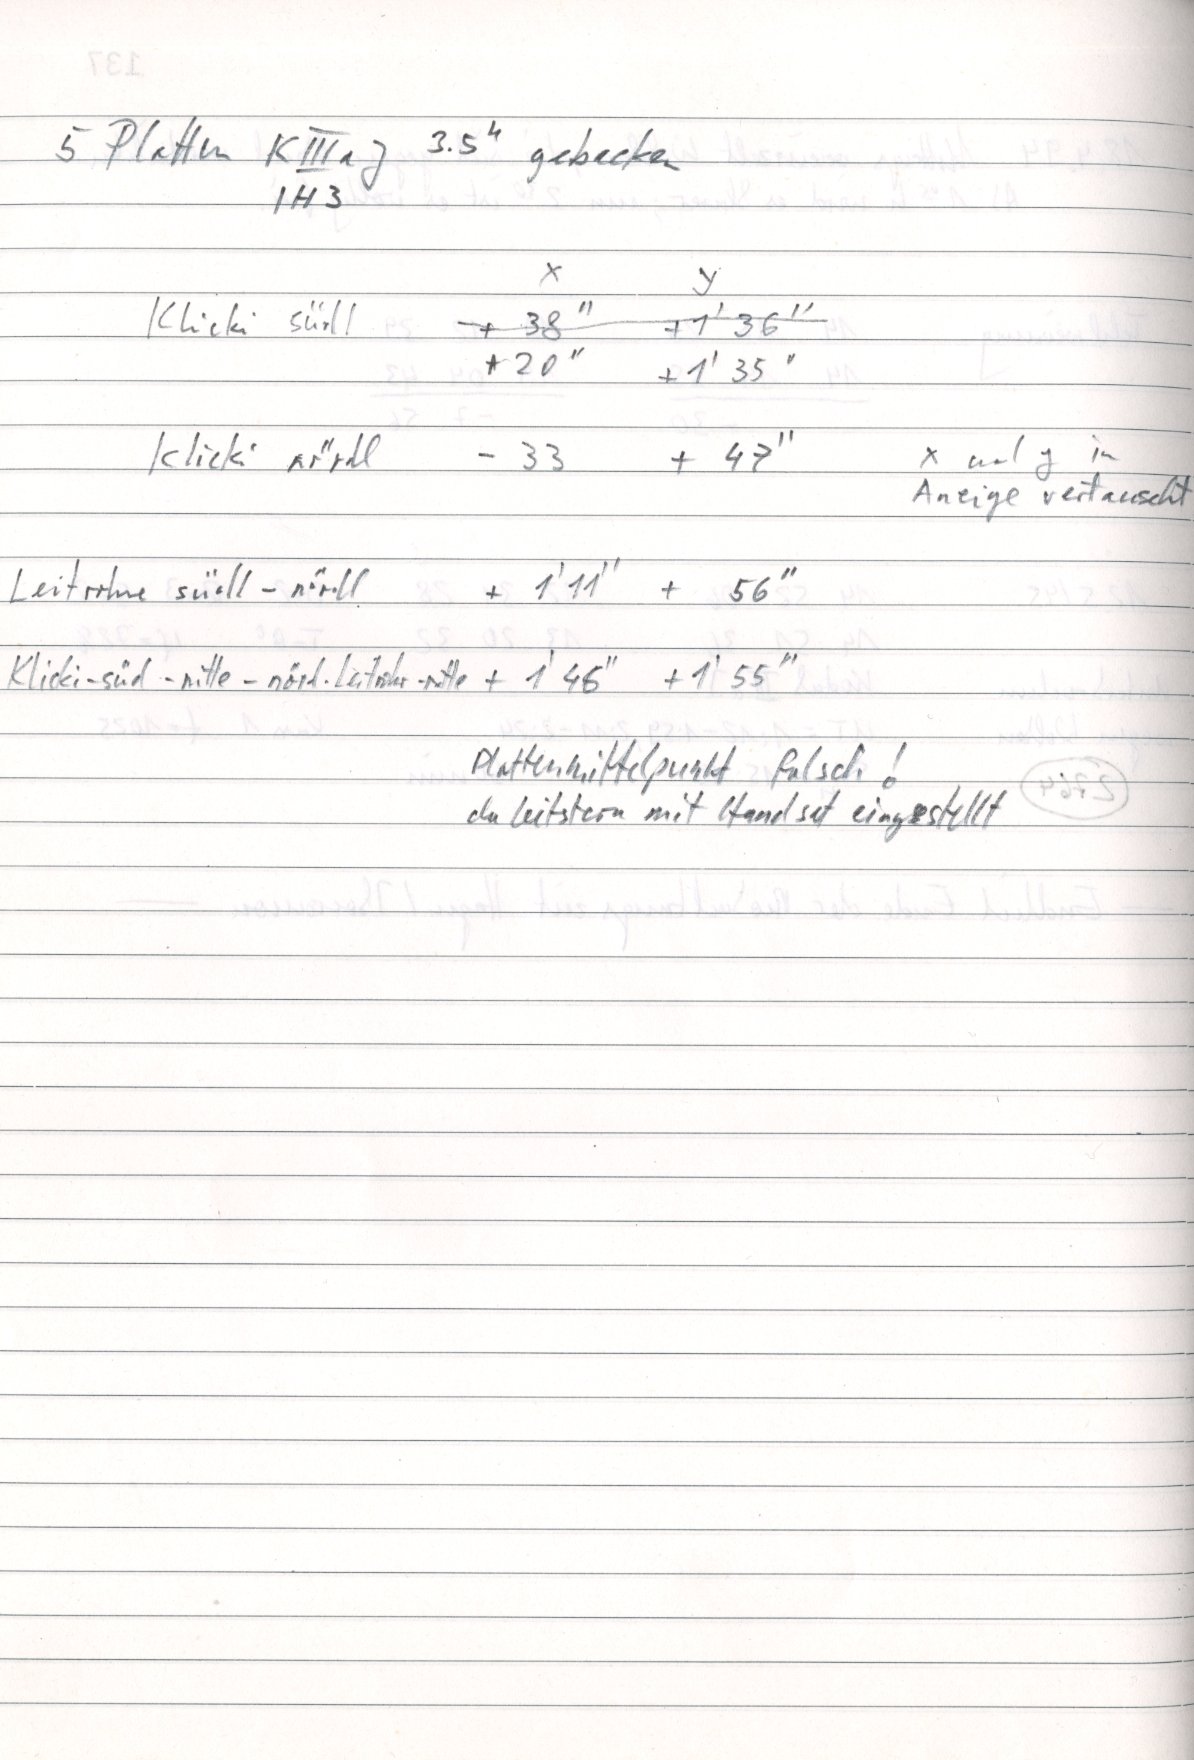 5 Platten KIIIaJ 3.5h gebacken
1H3
x y
Klicki südl + 38" +1' 36"
+20" +1' 35"
Klicki nördl - 33 + 47" x und y in
Anzeige vertauscht
Leitrohre südl - nördl + 1'11" + 56"
Klicki-süd-mitte - nörd. Leitrohr-mitte + 1' 46" +1' 55"
Plattenmittelpunkt falsch!
da Leitstern mit Handset eingestellt